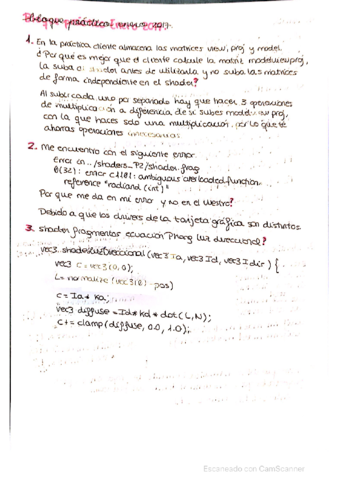 Bloque práctico
1. En la práctica cliente almacena las matrices view, proj y model
¿Por qué es mejor que el cliente calcule la matriz modelviewproj,
la suba al shader antes de utilizarla y no suba las matrices
de forma independiente en el shader?
Al subir cada una por separado hay que hacer 3 operaciones
de multiplicación a diferencia de si subes modelviewproj,
con la que haces solo una multiplicación, por lo que te
ahorras operaciones
2. Me encuentro con el siguiente error
Error in ../shaders_P2/shader.frag
0(32): error C1101: ambiguous overloaded function
reference "radians(int)"
Por que me da en mi error y no en el vuestro?
Debido a que los drivers de la tarjeta gráfica son distintos
3. shader fragmentos ecuación Phong luz direccional?
vec3 shadeLuzDireccional (vec3 Ia, vec3 Id, vec3 Idir) {
vec3 c = vec3(0,0);
L = normalize (vec3(0) - pos)
c = Ia * Ka;
vec3 diffuse = Id * Kd * dot(L,N);
c += clamp(diffuse, 0.0, 1.0);
Escaneado con CamScanner